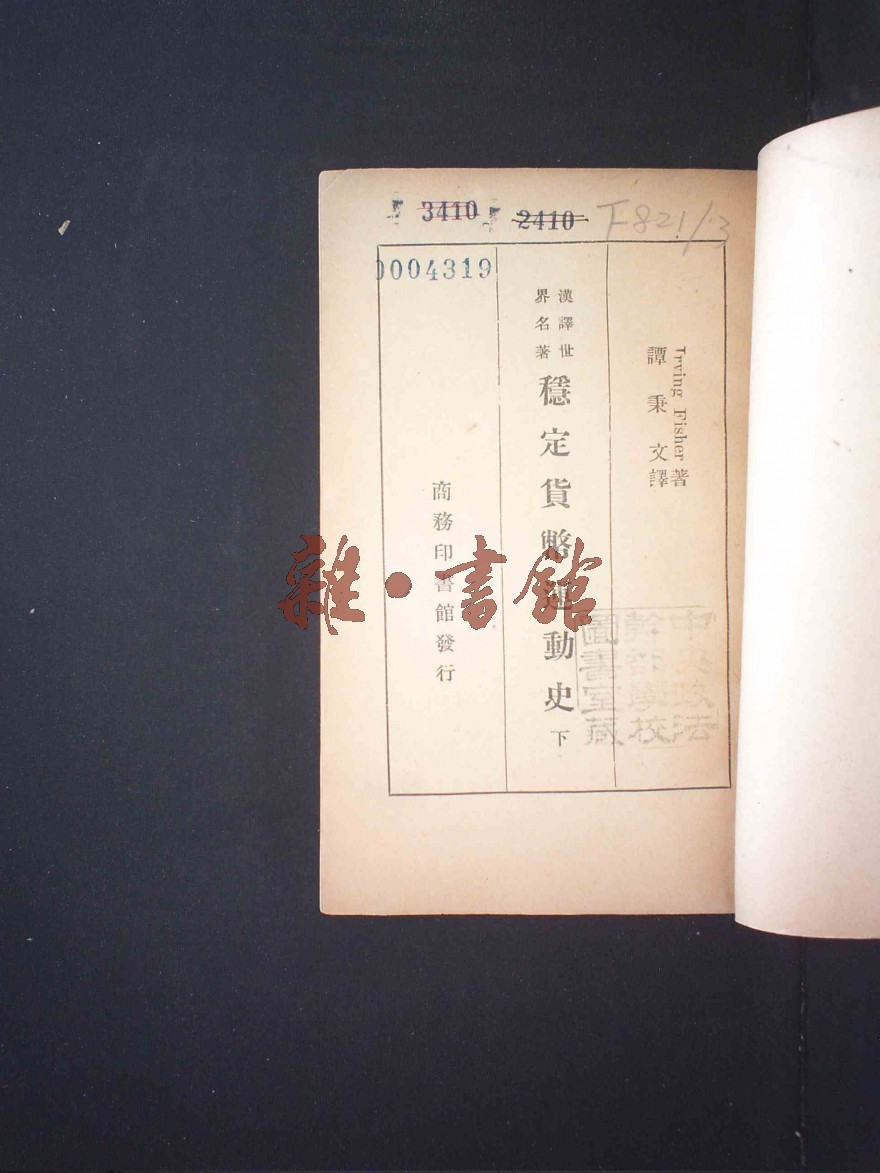 3410
2410
F821/13
0004319
Irving Fisher著
譚秉文譯
漢譯世
界名著
穩定貨幣運動史 下
商務印書館發行
中央政法
幹部學校
圖書室藏
雜·書館